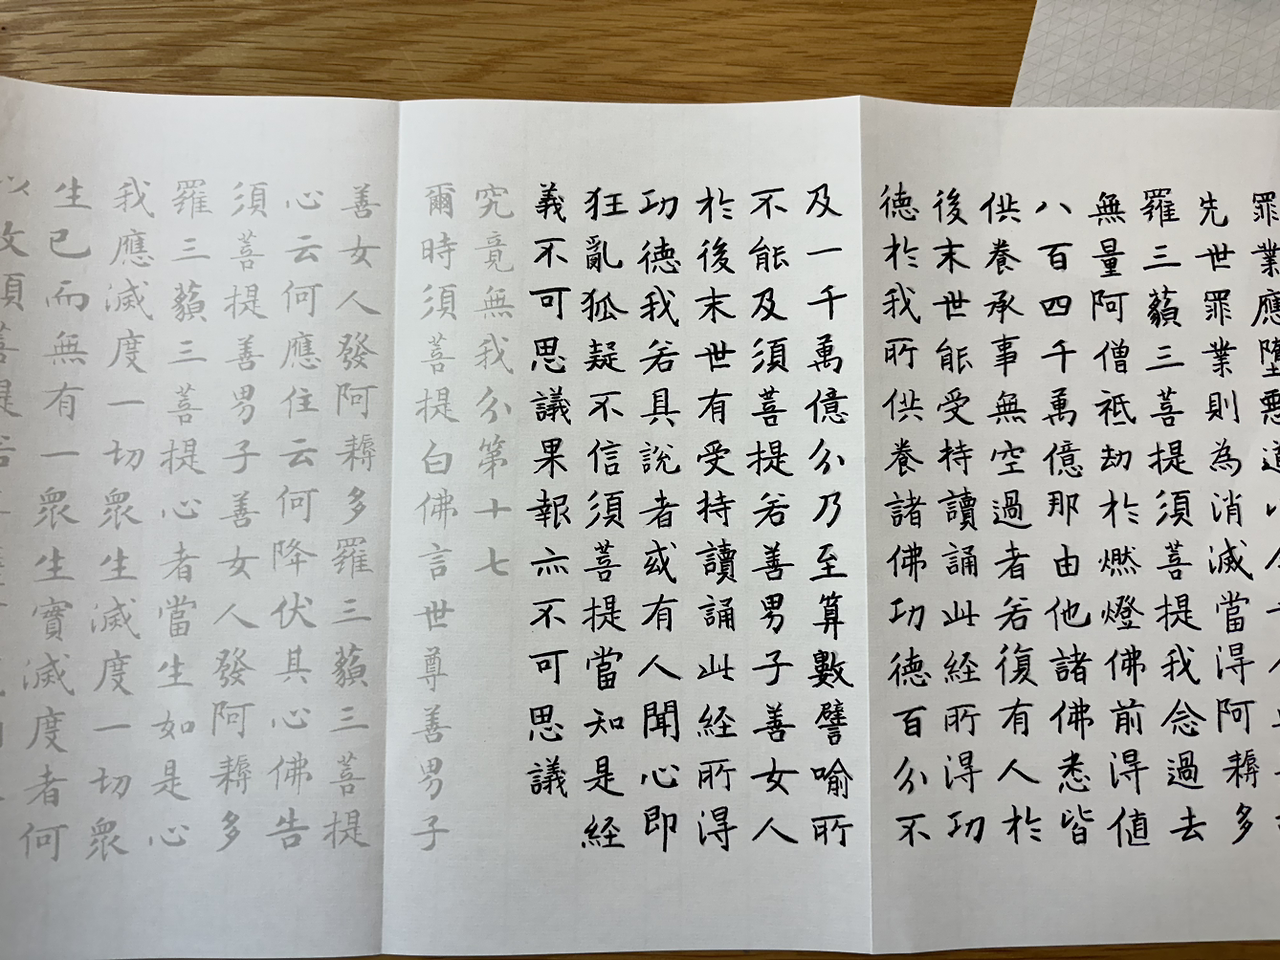 罪業應墮惡道以今
先世罪業則為消滅當得阿耨多
羅三藐三菩提須菩提我念過去
無量阿僧祇劫於燃燈佛前得値
八百四千萬億那由他諸佛悉皆
供養承事無空過者若復有人於
後末世能受持讀誦此経所得功
德於我所供養諸佛功德百分不
及一千萬億分乃至算數譬喻所
不能及須菩提若善男子善女人
於後末世有受持讀誦此経所得
功德我若具說者或有人聞心即
狂亂狐疑不信須菩提當知是経
義不可思議果報亦不可思議
究竟無我分第十七
爾時須菩提白佛言世尊善男子
善女人發阿耨多羅三藐三菩提
心云何應住云何降伏其心佛告
須菩提善男子善女人發阿耨多
羅三藐三菩提心者當生如是心
我應滅度一切衆生滅度一切衆
生已而無有一衆生實滅度者何
以故須菩提若